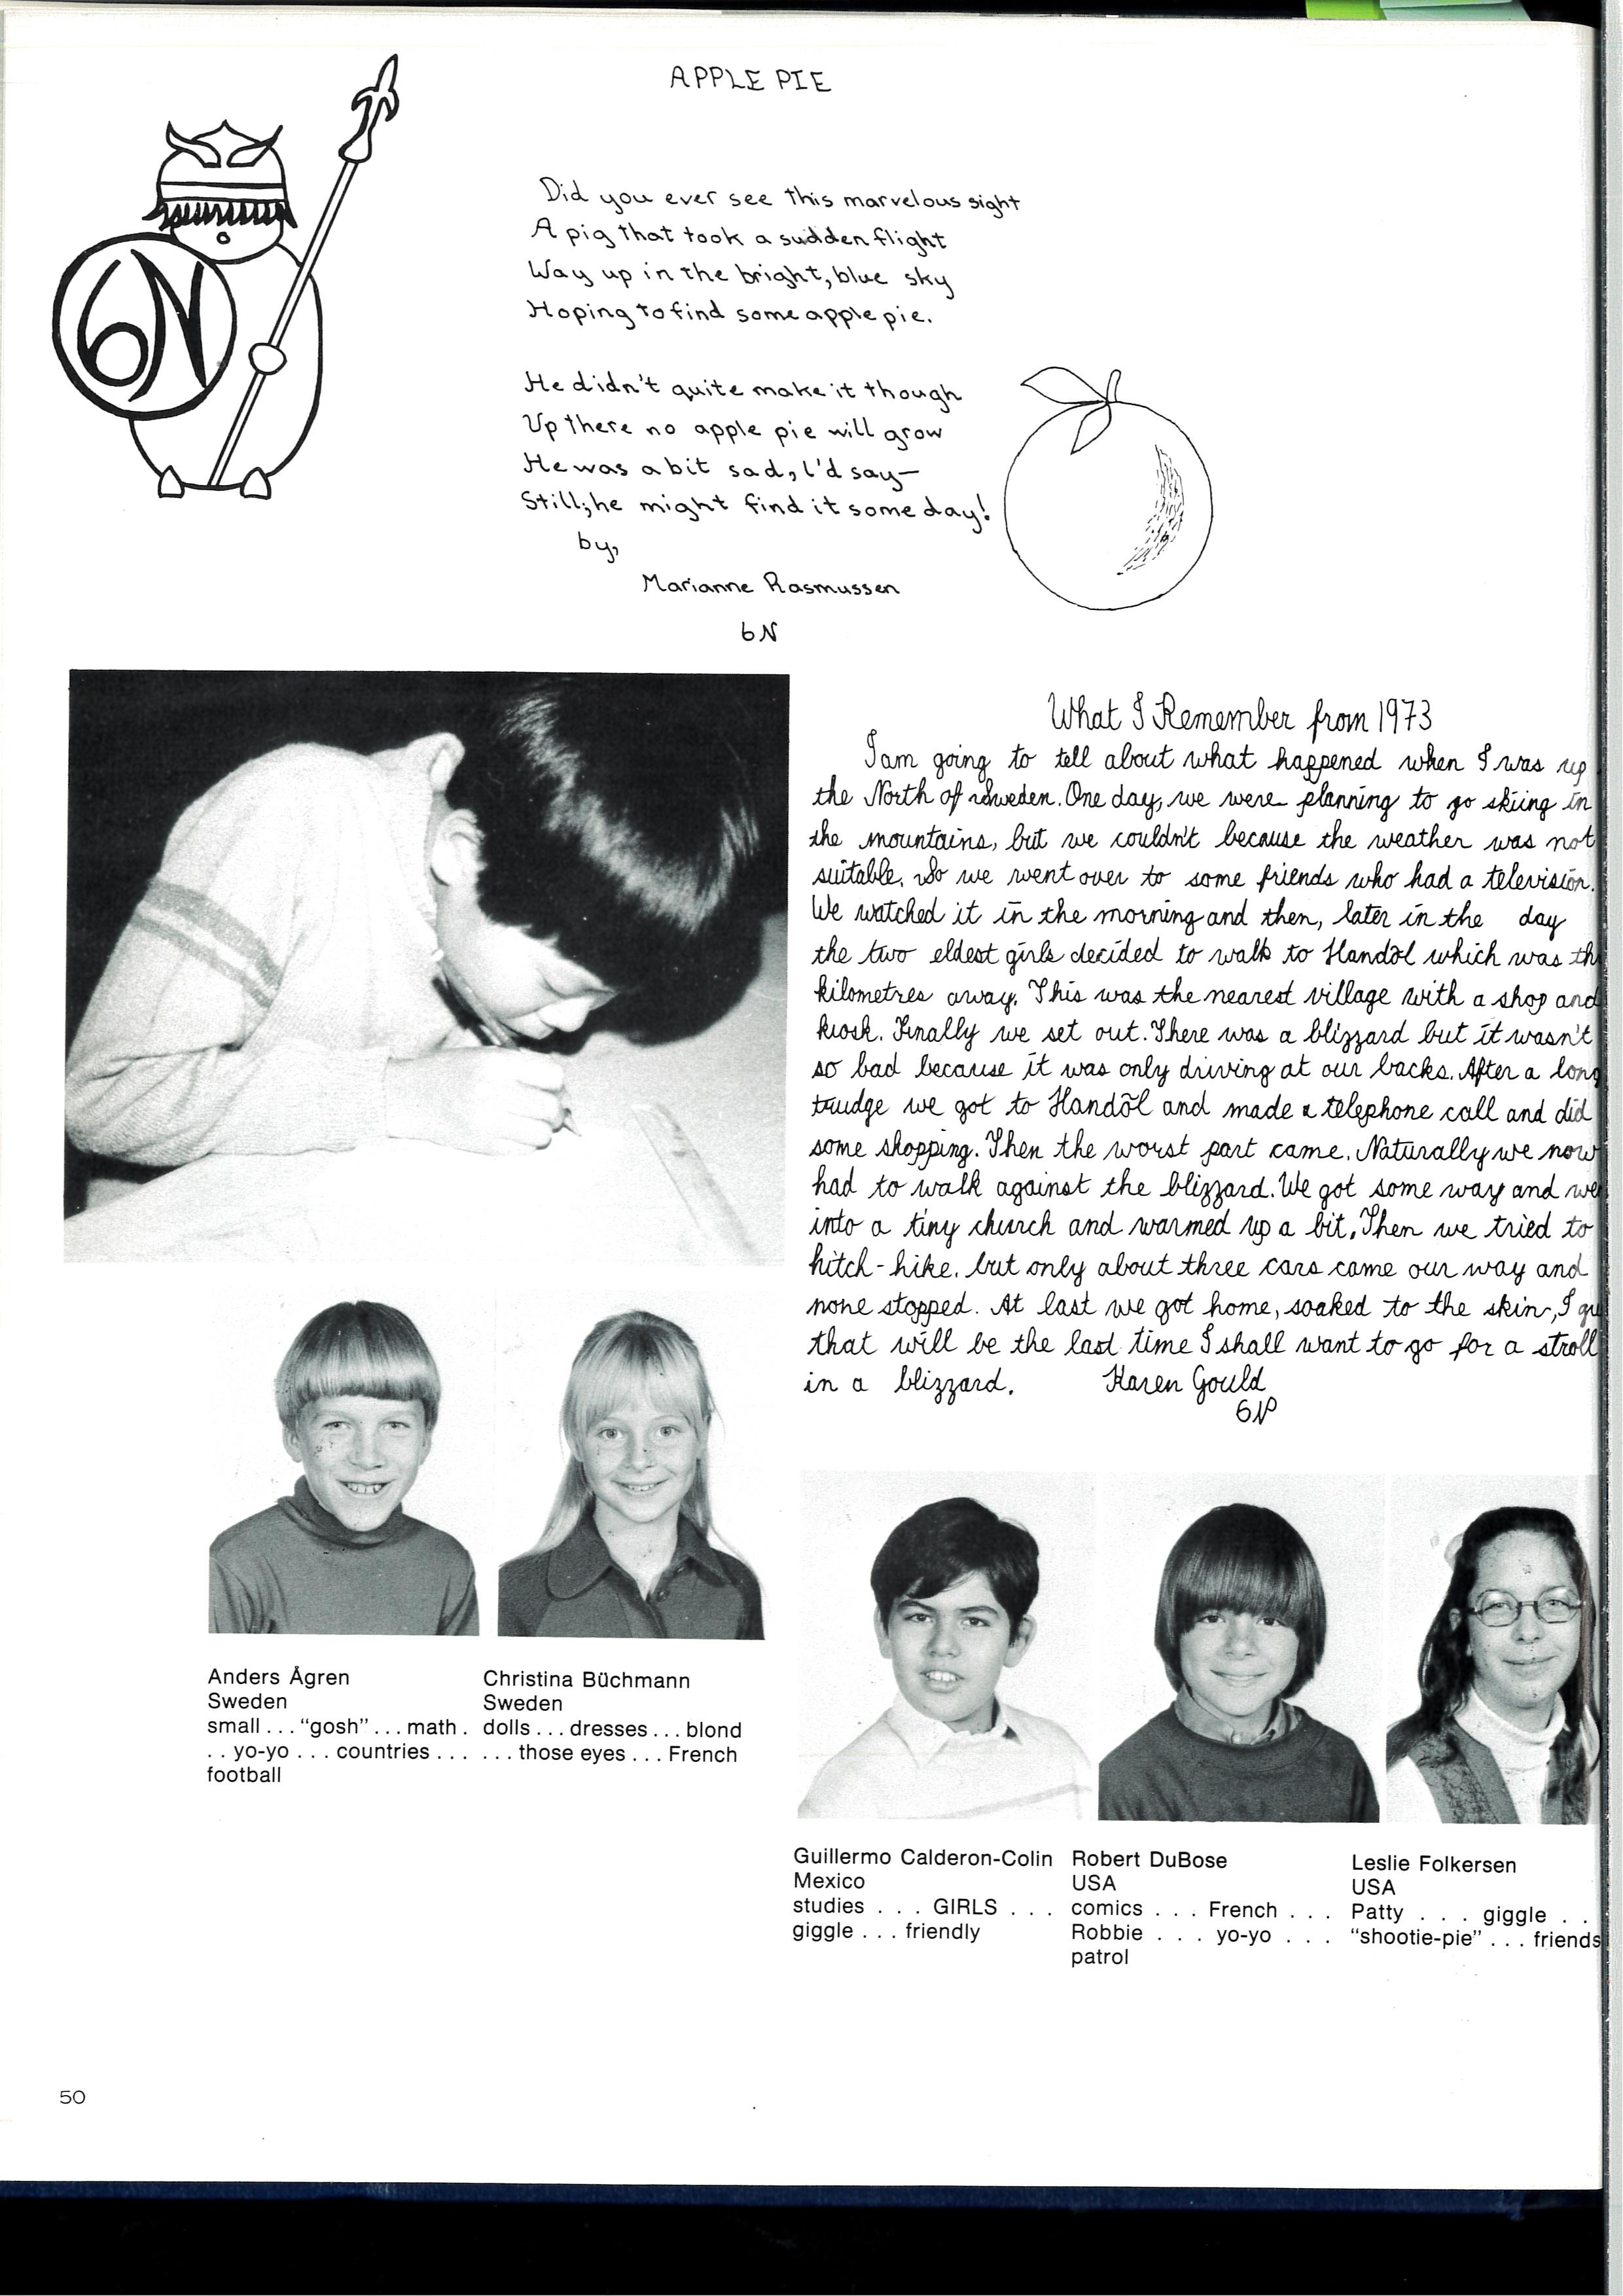 APPLE PIE
6N
Did you ever see this marvelous sight
A pig that took a sudden flight
Way up in the bright, blue sky
Hoping to find some apple pie.
He didn't quite make it though
Up there no apple pie will grow
He was a bit sad, I'd say—
Still; he might find it some day!
by,
Marianne Rasmussen
6N
What I Remember from 1973
I am going to tell about what happened when I was up
the North of Sweden. One day, we were planning to go skiing in
the mountains, but we couldn't because the weather was not
suitable. So we went over to some friends who had a television.
We watched it in the morning and then, later in the day
the two eldest girls decided to walk to Handöl which was
kilometres away. This was the nearest village with a shop and
kiosk. Finally we set out. There was a blizzard but it wasn't
so bad because it was only driving at our backs. After a long
trudge we got to Handöl and made a telephone call and did
some shopping. Then the worst part came. Naturally we now
had to walk against the blizzard. We got some way and
into a tiny church and warmed up a bit. Then we tried to
hitch-hike. but only about three cars came our way and
none stopped. At last we got home, soaked to the skin, I
that will be the last time I shall want to go for a stroll
in a blizzard. Karen Gould
6N
Anders Ågren
Sweden
small . . . "gosh" . . . math .
. . yo-yo . . . countries . . .
football
Christina Büchmann
Sweden
dolls . . . dresses . . . blond
. . . those eyes . . . French
Guillermo Calderon-Colin
Mexico
studies . . . GIRLS . . .
giggle . . . friendly
Robert DuBose
USA
comics . . . French . . .
Robbie . . . yo-yo . . .
patrol
Leslie Folkersen
USA
Patty . . . giggle . .
"shootie-pie" . . . friends
50